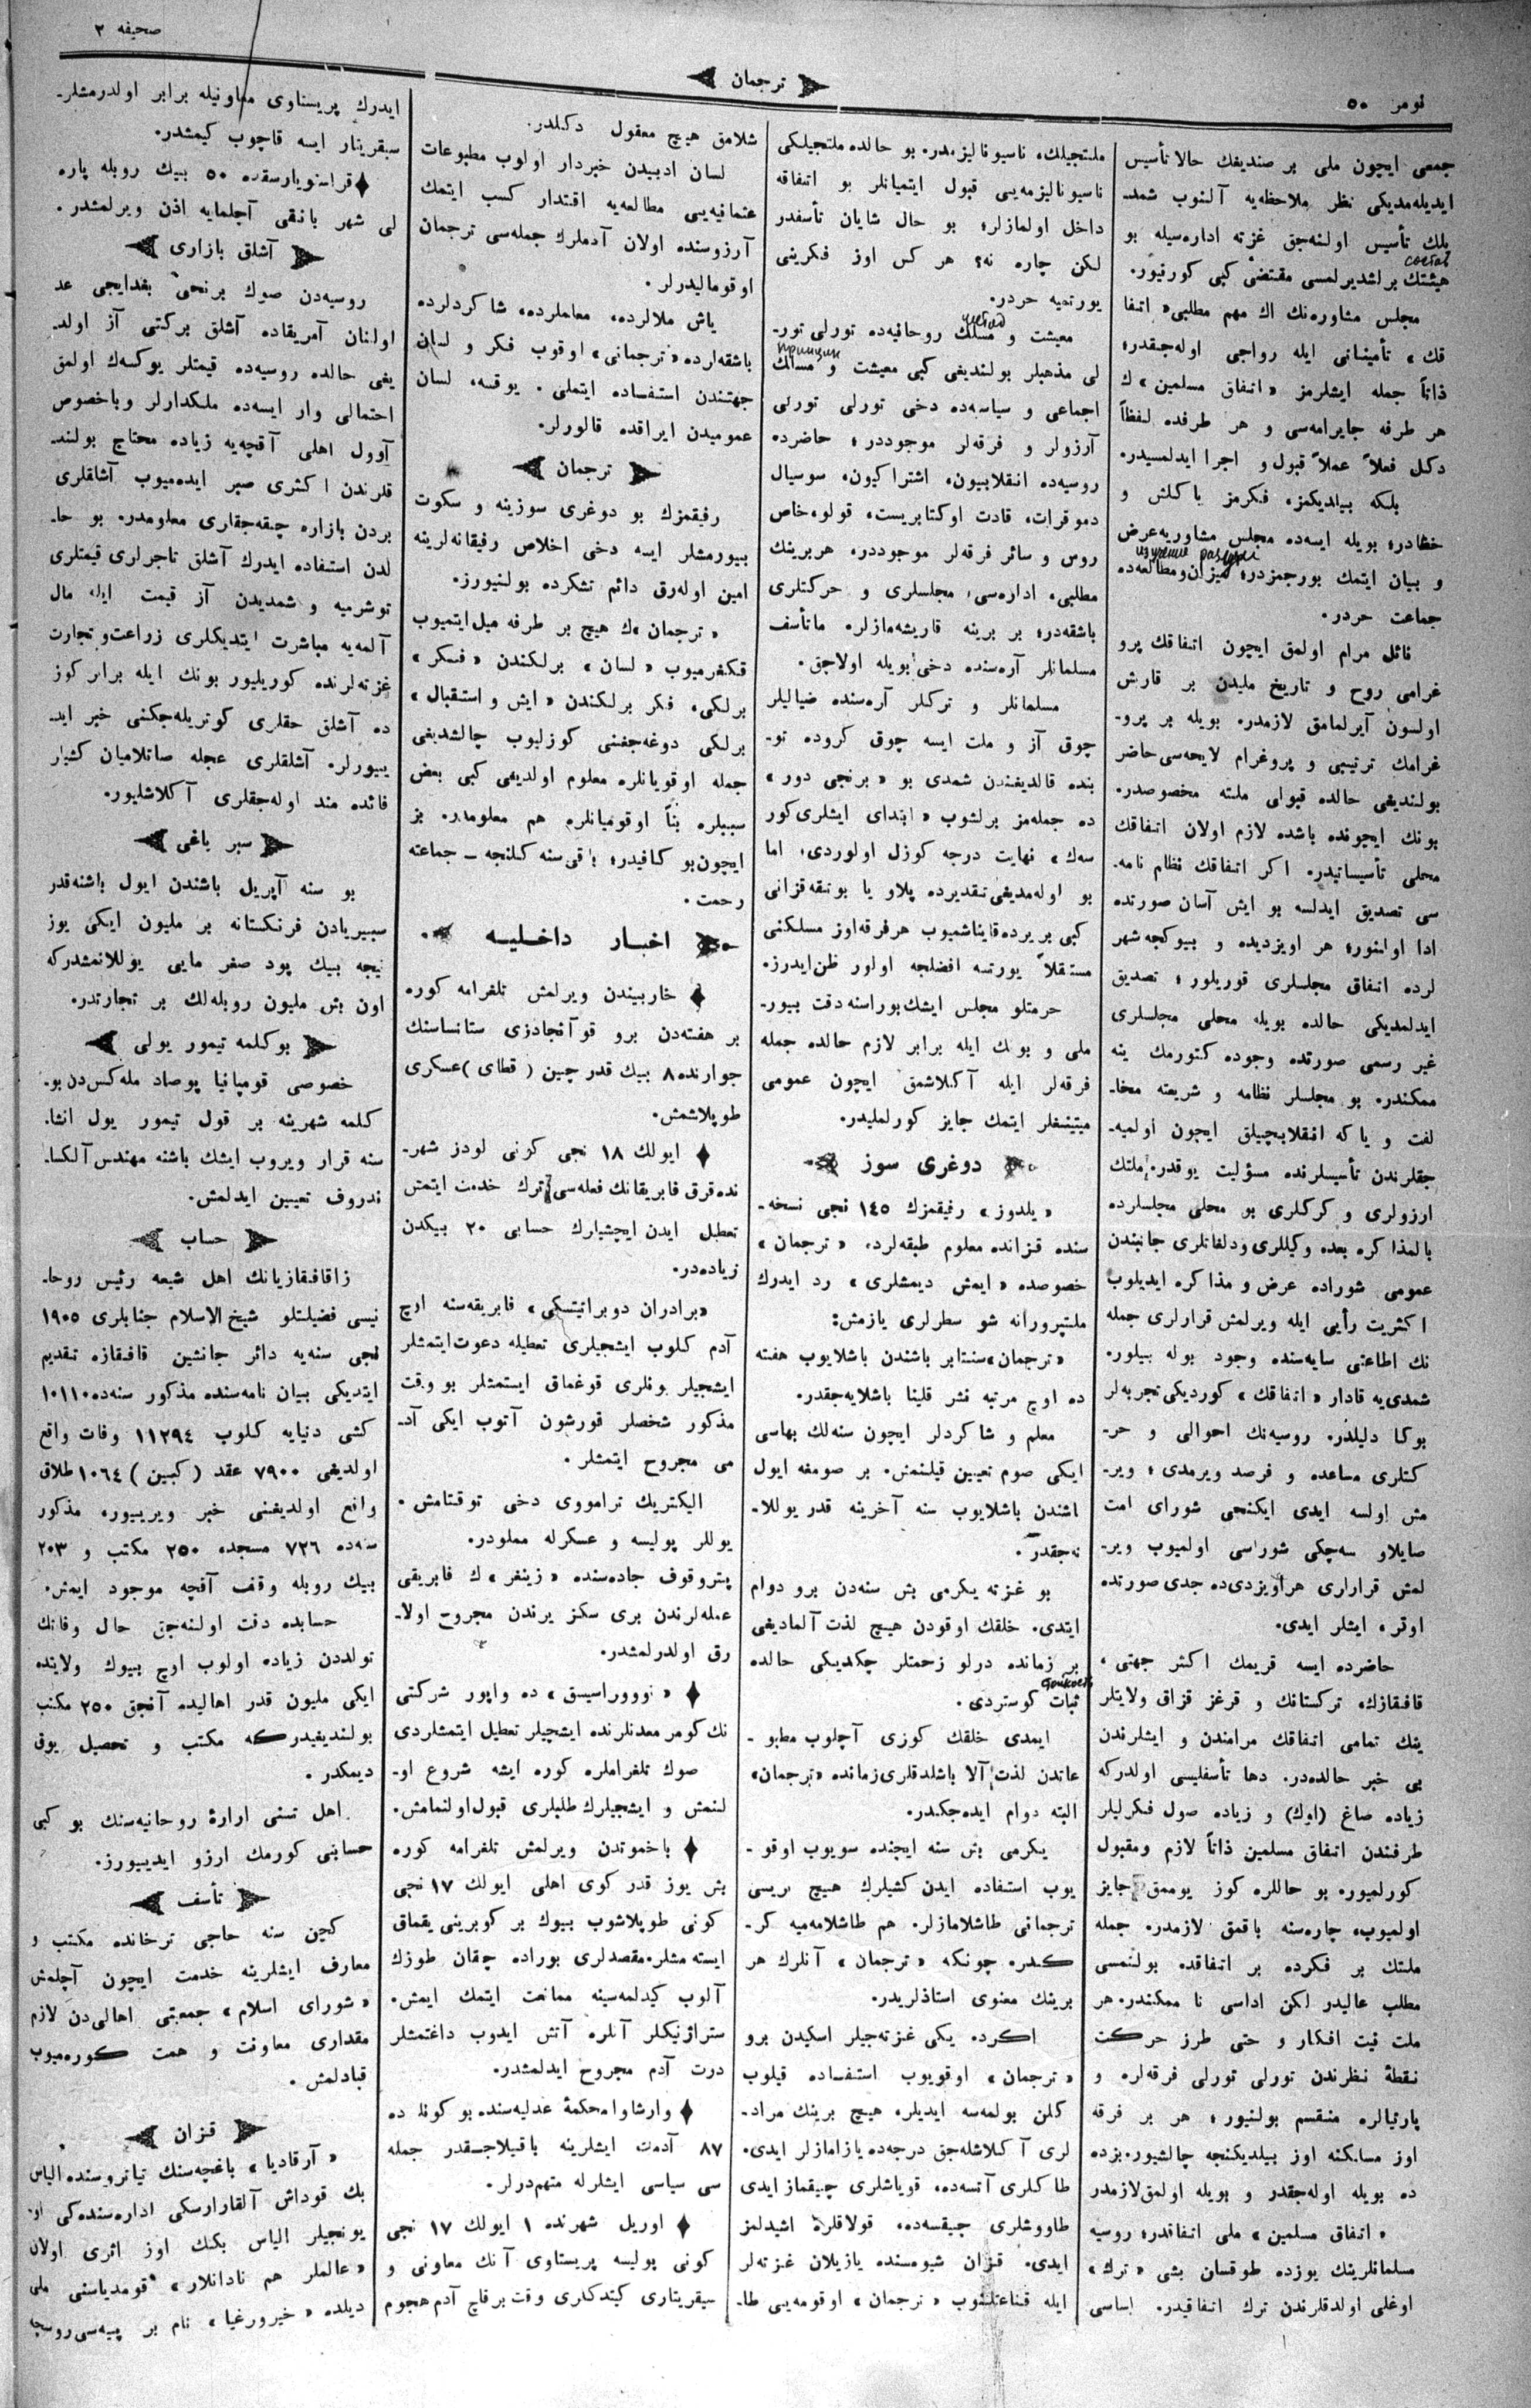 نومر ٥٠
ترجمان
صحیفه ٢
جمعی ایچون ملی بر صندیغك حالا تأسیس
ایدیله‌مدیکی نظر ملاحظه‌یه آلنوب شمد-
یلك تأسیس اولنه‌جق غزته اداره‌سیله بو
состав
هیئتك براشدیرلمسی مقتضی کبی کورنیور.
مجلس مشاوره‌نك اك مهم مطلبی «اتفا
قك» تأمیناتی ایله رواجی اوله‌جقدر؛
ذاتاً جمله ایشلرمز «اتفاق مسلمین»ك
هر طرفه جایرامه‌سی و هر طرفده لفظاً
دکل فعلاً عملاً قبول و اجرا ایدلمسیدر.
بلکه بیلدیکمز، فکرمز یاکلش و
خطادر؛ بویله ایسه‌ده مجلس مشاوریه عرض
изучение разбери
و بیان ایتمك بورجمزدر؛ میزان و مطالعه‌ده
جماعت حردر.
نائل مرام اولمق ایچون اتفاقك پرو
غرامی روح و تاریخ ملیدن بر قارش
اولسون آیرلمامق لازمدر. بویله بر پرو-
غرامك ترتیبی و پروغرام لایحه‌سی حاضر
بولندیغی حالده قبولی ملته مخصوصدر.
بونك ایچونده باشده لازم اولان اتفاقك
محلی تأسیساتیدر. اکر اتفاقك نظام نامه-
سی تصدیق ایدلسه بو ایش آسان صورتده
ادا اولنور؛ هر اویزدیده و بیوکجه شهر
لرده اتفاق مجلسلری قوریلور؛ تصدیق
ایدلمدیکی حالده بویله محلی مجلسلری
غیر رسمی صورتده وجوده کتورمك ینه
ممکندر. بو مجلسلر نظامه و شریعته مخا-
لفت و یا که انقلابچیلق ایچون اولمیه-
جقلرندن تأسیسلرنده مسؤلیت یوقدر. ملتك
ارزولری و کرکلری بو محلی مجلسلرده
بالمذاکره بعده وکیللری ودلغاتلری جانبندن
عمومی شوراده عرض و مذاکره ایدیلوب
اکثریت رأیی ایله ویرلمش قرارلری جمله
نك اطاعتی سایه‌سنده وجود بوله بیلور.
شمدی‌یه قادار «اتفاقك» کوردیکی تجربه‌لر
بوکا دلیلدر. روسیه‌نك احوالی و حر-
کتلری مساعده و فرصد ویرمدی؛ ویر-
مش اولسه ایدی ایکنجی شورای امت
صایلاو سه‌چکی شوراسی اولمیوب ویر-
لمش قراراری هراویزدی‌ده جدی صورتده
اوتر، ایشلر ایدی.
حاضرده ایسه قریمك اکثر جهتی،
قافقازك، ترکستانك و قرغز قزاق ولایتلر
ینك تمامی اتفاقك مرامندن و ایشلرندن
بی خبر حالده‌در. دها تأسفلیسی اولدرکه
زیاده صاغ (اوك) و زیاده صول فکرلیلر
طرفندن اتفاق مسلمین ذاتاً لازم ومقبول
کورلمیور. بو حاللره کوز یوممق جایز
اولمیوب، چاره‌سنه باقمق لازمدر. جمله
ملتك بر فکرده بر اتفاقده بولنمسی
مطلب عالیدر لکن اداسی نا ممکندر. هر
ملت نیت افکار و حتی طرز حرکت
نقطهٔ نظرندن تورلی تورلی فرقه‌لره و
پارتیالره منقسم بولنیور؛ هر بر فرقه
اوز مسلکنه اوز بیلدیکنجه چالشیور. بزده
ده بویله اوله‌جقدر و بویله اولمق لازمدر
«اتفاق مسلمین» ملی اتفاقدر؛ روسیه
مسلمانلرینك یوزده طوقسان بشی «ترك»
اوغلی اولدقلرندن ترك اتفاقیدر. اساسی
ملتجیلك، ناسیونالیزمدر. بو حالده ملتجیلکی
ناسیونالیزمه‌یی قبول ایتمیانلر بو اتفاقه
داخل اولمازلر؛ بو حال شایان تأسفدر
لکن چاره نه؟ هر کس اوز فکرینی
یورتمیه حردر.
معیشت و مسلك روحانیه‌ده تورلی تور-
принцип
لی مذهبلر بولندیغی کبی معیشت و مسلك
اجماعی و سیاسیه‌ده دخی تورلی تورلی
آرزولر و فرقه‌لر موجوددر؛ حاضرده
روسیه‌ده انقلابیون، اشتراکیون، سوسیال
دموقرات، قادت اوکتابریست، قولو، خاص
روس و سائر فرقه‌لر موجوددر، هربرینك
مطلبی، اداره‌سی، مجلسلری و حرکتلری
باشقه‌در؛ بر برینه قاریشه‌مازلر. ماتأسف
مسلمانلر آره‌سنده دخی بویله اولاجق.
مسلمانلر و ترکلر آره‌سنده ضیالیلر
چوق آز و ملت ایسه چوق کروده تو-
بنده قالدیغندن شمدی بو «برنجی دور»
ده جمله‌مز برلشوب «ابتدای ایشلری کور
سه‌ك» نهایت درجه کوزل اولوردی، اما
بو اوله‌مدیغی تقدیرده پلاو یا بوتقه قزانی
کبی بر یرده قایناشمیوب هرفرقه اوز مسلکنی
مستقلاً یورتسه افضلجه اولور ظن ایدرز.
حرمتلو مجلس ایشك بوراسنه دقت بیور-
ملی و بونك ایله برابر لازم حالده جمله
فرقه‌لر ایله آکلاشمق ایچون عمومی
میتینغلر ایتمك جایز کورلملیدر.
دوغری سوز
«یلدوز» رفیقمزك ١٤٥ نجی نسخه-
سنده قزانده معلوم طبقه‌لرد، «ترجمان»
خصوصده «ایمش دیمشلری» رد ایدرك
ملتپرورانه شو سطرلری یازمش:
«ترجمان» سنتابر باشندن باشلایوب هفته
ده اوچ مرتبه نشر قلینا باشلایه‌جقدر.
معلم و شاکردلر ایچون سنه‌لك بهاسی
ایکی صوم تعیین قیلنمش. بر صومغه ایول
اشندن باشلایوب سنه آخرینه قدر یوللا-
نه‌جقدر.
بو غزته یکرمی بش سنه‌دن برو دوام
ایتدی. خلقك اوقودن هیچ لذت آلمادیغی
بر زمانده درلو زحمتلر چکدیکی حالده
ثبات کوستردی.
ایمدی خلقك کوزی آچلوب مطبو-
عاتدن لذت آلا باشلدقلری زمانده «ترجمان»
البته دوام ایده‌جکدر.
یکرمی بش سنه ایچنده سویوب اوقو-
یوب استفاده ایدن کشیلرك هیچ بریسی
ترجمانی طاشلامازلر. هم طاشلامه‌میه کر-
کدر. چونکه «ترجمان» آنلرك هر
برینك معنوی استاذلریدر.
اکرد. یکی غزته‌جیلر اسکیدن برو
«ترجمان» اوقویوب استفاده قیلوب
کلن بولمه‌سه ایدیلر، هیچ برینك مراد-
لری آکلاشله‌جق درجه‌ده یازامازلر ایدی.
طاکلری آتسه‌ده، قویاشلری چیقماز ایدی
طاووشلری چیقسه‌ده، قولاقلره اشیدلمز
ایدی. قزان شیوه‌سنده یازیلان غزته‌لر
ایله قناعتلنوب «ترجمان» اوقومه‌یی طا-
شلامق هیچ معقول دکلدر.
لسان ادبیدن خبردار اولوب مطبوعات
عثمانیه‌یی مطالعه‌یه اقتدار کسب ایتمك
آرزوسنده اولان آدملرك جمله‌سی ترجمان
اوقومالیدرلر.
یاش ملالرده، معلملرده، شاکردلرده
باشقه‌لرده «ترجمانی» اوقوب فکر و لسان
جهتندن استفاده ایتملی. یوقسه، لسان
عمومیدن ایراقده قالورلر.
ترجمان
رفیقمزك بو دوغری سوزینه و سکوت
بیورمشلر ایسه دخی اخلاص رفیقانه‌لرینه
امین اوله‌رق دائم تشکرده بولنیورز.
«ترجمان»ك هیچ بر طرفه میل ایتمیوب
قنکغرمیوب «لسان» برلکندن «فکر»
برلکی، فکر برلکندن «ایش و استقبال»
برلکی دوغه‌جغنی کوزلیوب چالشدیغی
جمله اوقویانلره معلوم اولدیغی کبی بعض
سببلره بنأ اوقومیانلره هم معلومدر. بز
ایچون بو کافیدر؛ باقی سنه کلنجه – جماعته
رحمت.
اخبار داخلیه
خاربیندن ویرلمش تلغرامه کوره
بر هفته‌دن برو قوآنجادزی ستانساسنك
جوارنده ٨ بیك قدر چین (قطای) عسکری
طوپلاشمش.
ایولك ١٨ نجی کونی لودز شهر-
نده قرق فابریقانك فعله‌سی ترك خدمت ایتمش
تعطیل ایدن ایچشیارك حسابی ٢٠ بیکدن
زیاده‌در.
«برادران دوبرانیتسکی» فابریقه‌سنه اوچ
آدم کلوب ایشجیلری تعطیله دعوت ایتمشلر
ایشجیلر بونلری قوغماق ایستمشلر بو وقت
مذکور شخصلر قورشون آتوب ایکی آد-
می مجروح ایتمشلر.
الیکتریك تراموو‌ی دخی توقتامش.
یوللر پولیسه و عسکرله مملودر.
پتروقوف جاده‌سنده «زینغر»ك فابریقی
عمله‌لرندن بری سکز یرندن مجروح اولا-
رق اولدرلمشدر.
«نوووراسیسق» ده واپور شرکتی
نك کومر معدنلرنده ایشچیلر تعطیل ایتمشلردی
صوك تلغراملره کوره ایشه شروع او-
لنمش و ایشجیلرك طلبلری قبول اولنمامش.
باخموتدن ویرلمش تلغرامه کوره
بش یوز قدر کوی اهلی ایولك ١٧ نجی
کونی طوپلاشوب بیوك بر کوبرینی یقماق
ایسته مشلر. مقصدلری بوراده چقان طوزك
آلوب کیدلمه‌سینه ممانعت ایتمك ایمش.
ستراژنیکلر آنلره آتش ایدوب داغتمشلر
درت آدم مجروح ایدلمشدر.
وارشاوا محکمهٔ عدلیه‌سنده بو کونلده
٨٧ آدمك ایشلرینه باقیلاجقدر جمله
سی سیاسی ایشلرله متهم‌درلر.
اوریل شهرنده ١ ایولك ١٧ نجی
کونی پولیسه پریستاوی آنك معاونی و
سیقریتاری کیتدکلری وقت برقاچ آدم هجوم
ایدرك پریستاوی معاونیله برابر اولدرمشلر-
سیقریتار ایسه قاچوب کیتمشدر.
قراسنویارسقده ٥٠ بیك روبله پاره
لی شهر بانقی آچلمایه اذن ویرلمشدر.
آشلق بازاری
روسیه‌دن صوك برنجی بغدایجی عد
اولنان آمریقاده آشلق برکتی آز اولد-
یغی حالده روسیه‌ده قیمتلر یوکسه‌ك اولمق
احتمالی وار ایسه‌ده ملکدارلر وباخصوص
آوول اهلی آقچه‌یه زیاده محتاج بولند-
قلرندن اکثری صبر ایده‌میوب آشلقلری
بردن بازاره چیقه‌جقاری معلومدر. بو حا-
لدن استفاده ایدرك آشلق تاجرلری قیمتلری
توشرمیه و شمدیدن آز قیمت ایله مال
آلمه‌یه مباشرت ایتدیکلری زراعت و تجارت
غزته‌لرنده کوریلیور بونك ایله برابر کوز
ده آشلق حقلری کوتریله‌جکنی خبر اید-
ییورلر. آشلقلری عجله صاتلامیان کشیلر
فائده مند اوله‌جقلری آکلاشلیور.
سبر یاغی
بو سنه آپریل باشندن ایول باشنه‌قدر
سیبیریادن فرنکستانه بر ملیون ایکی یوز
نیجه بیك پود صغر مایی یوللانمشدرکه
اون بش ملیون روبله‌لك بر تجارتدر.
بوکلمه تیمور یولی
خصوصی قومپانیا پوصاد مله‌کس‌دن بو-
کلمه شهرینه بر قول تیمور یول انشا-
سنه قرار ویروب ایشك باشنه مهندس آلکسا-
ندروف تعیین ایدلمش.
حساب
زاقافقازیانك اهل شیعه رئیس روحا-
نیسی فضیلتلو شیخ الاسلام جنابلری ١٩٠٥
نجی سنه‌یه دائر جانشین قافقازه تقدیم
ایتدیکی بیان نامه‌سنده مذکور سنه‌ده ١٠١١٠
کشی دنیایه کلوب ١١٢٩٤ وفات واقع
اولدیغی ٧٩٠٠ عقد (کبین) ١٠٦٤ طلاق
واقع اولدیغنی خبر ویریبور، مذکور
سنه‌ده ٧٢٦ مسجده، ٢٥٠ مکتب و ٢٠٣
بیك روبله وقف آقچه موجود ایمش.
حسابده دقت اولنه‌جق حال وفاتك
تولددن زیاده اولوب اوچ بیوك ولایتده
ایکی ملیون قدر اهالیده آنجق ٢٥٠ مکتب
بولندیغیدرکه مکتب و تحصیل یوق
دیمکدر.
اهل تسنی ارارهٔ روحانیه‌سنك بو کبی
حسابنی کورمك ارزو ایدییورز.
تأسف
کچن سنه حاجی ترخانده مکتب و
معارف ایشلرینه خدمت ایچون آچلمش
«شورای اسلام» جمعیتی اهالی‌دن لازم
مقداری معاونت و همت کوره‌میوب
قپادلمش.
قزان
«آرقادیا» باغچه‌سنك تیاتروسنده الیاس
بك قوداش آلقارارسکی اداره‌سنده‌کی او-
یونجیلر الیاس بکك اوز اثری اولان
«عالملر هم نادانلار» قومدیاسنی ملی
دیلده «خیرورغیا» نام بر پیه‌سی روسچه